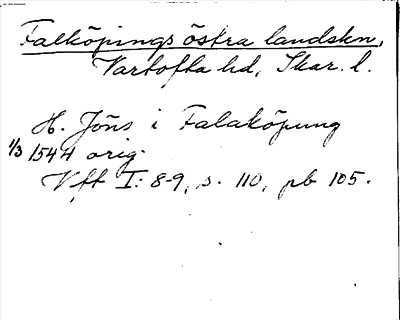 Falköpings östra landskn,
Vartofta hd, Skar. l.
H. Jöns i Falaköpung
1/3 1544 orig.
Vfft I: 8-9, s. 110, pb 105.